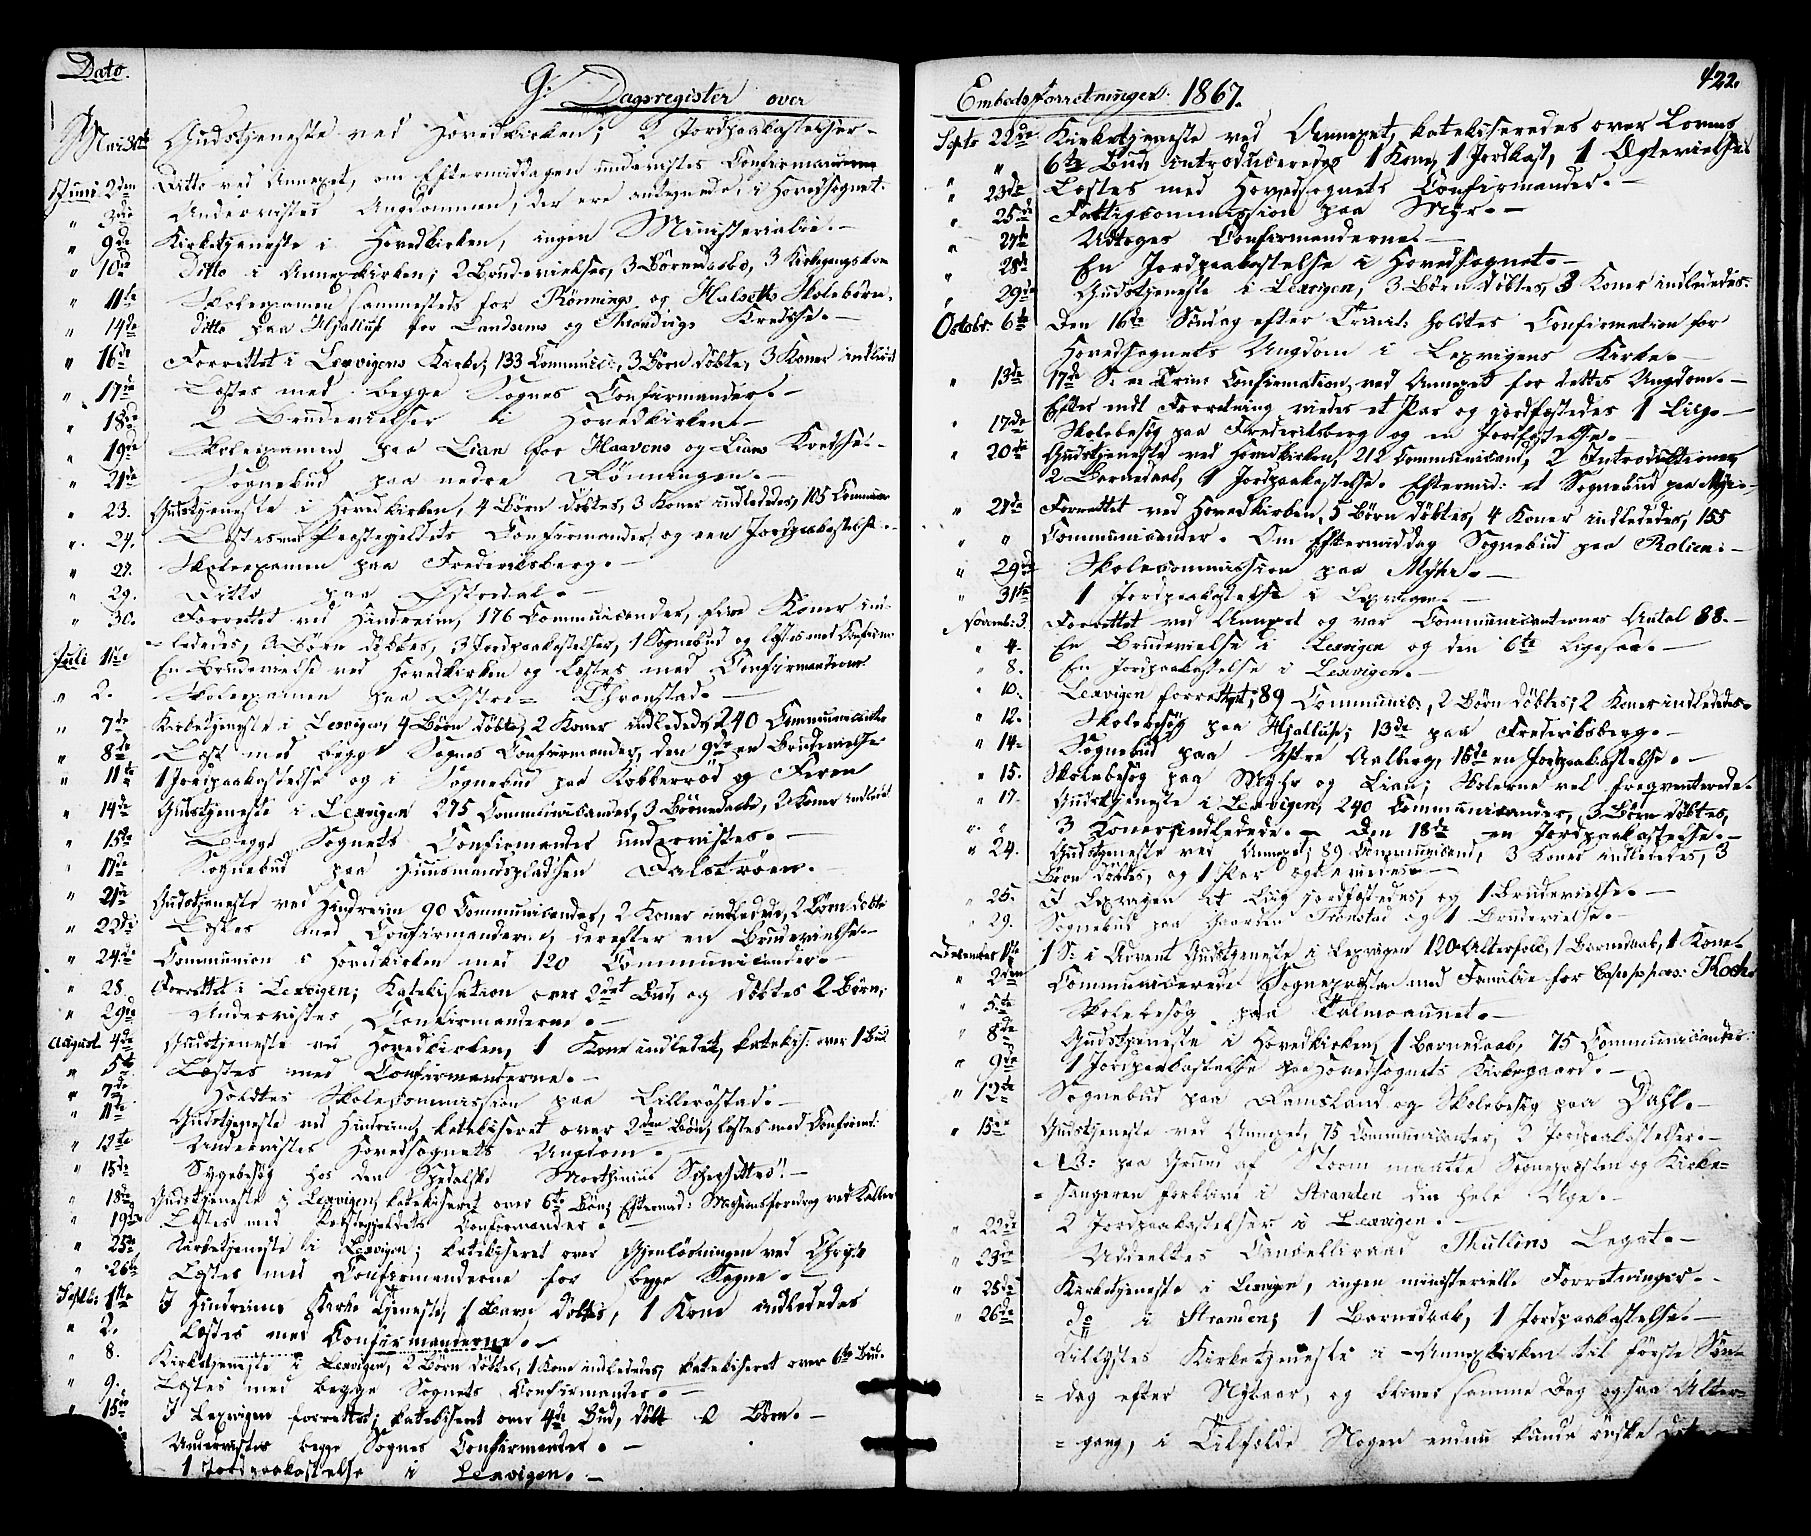 Dato.
G: Dagsregister over
Mai 30te Gudstjeneste ved Hovedkirken; 2 Jordpaakastelser.-
Juni 2den Ditto ved Annexet, om Eftermiddagen undervistes Confirmanderne
" 3die Undervistes Ungdommen, der ere antegnede i Hovedsognet.
" 9de Kirketjeneste i Hovedkirken, ingen Ministerialie.-
" 10de Ditto i Annexkirken; 2 Brudevielser, 3 Börnedaabe, 3 Kirkegangskon
" 11te Skoleexamen sammesteds for Rönnings og Halsetts Skolebörn.
" 14de ditto paa Hjellup for Landsems og Kredse.-
" 16de Forrettet i Lexvigens Kirke; 133 Communic:, 3 Börn döbte, 3 Koner indledt
" 17de Læstes med begge Sognes Confirmander.-
" 18de 2 Brudevielser i Hovedkirken.-
" 19de Skoleexamen paa Lian for Haavens og Lians Kredse.-
" 21de Sognebud paa nedre Rönningen.-
" 23. Gudstjeneste i Hovedkirken, 4 Börn döbtes, 3 Koner indlededes, 105 Commun
" 24. Læstes med Præstegjeldets Confirmander og een Jordpaakastelse.-
" 27. Skoleexamen paa Frederiksberg.-
" 29. Ditto paa Österdal.-
" 30. Forrettet ved Hindreim, 176 Communicander, fire Koner ind-
-lededes, 3 Börn döbtes, 3 Jordpaakastelser, 1 Sognebud og læstes med Confirm
Juli 1ste En Brudevielse ved Hovedkirken og Læstes med Confirmanderne
" 2. Skoleexamen paa Östre- Thronstad.-
" 7de Kirketjeneste i Lexvigen, 4 Börn döbte, 2 Koner indledede, 240 Communicanter
" 8de Læst med begge Sognes Confirmander, den 9de en Brudevielse
" 11te 1 Jordpaakastelse og i Sognebud paa Kobberröd og Feren
" 14de Gudstjeneste i Lexvigen 275 Communicander, 3 Börnedaabe, 2 Koner indledt
" 15de Begge Sognets Confirmander undervistes.-
" 17de Sognebud paa Huusmandspladsen Dalströen.-
" 21de Gudstjeneste ved Hindreim 90 Communicander, 2 Koner indledede, 2 Börn döbte
" 22de Læstes med Confirmanderne, derefter en Brudevielse.-
" 24de Communion i Hovedkirken med 120 Communicander.-
" 28. Forrettet i Lexvigen; Katekisation over 2det Bud, og döbtes 2 Börn;
" 29de Undervistes Confirmanderne.-
August 4de Gudstjeneste ved Hovedkirken, 1 Kone indledet, katekis: over 1 Bud
" 5te Læstes med Confirmanderne.-
" 7de Holdtes Skolecommission paa Lilleröstad.-
" 11te Gudstjeneste ved Hindreim, katekiseret over 2den Bön, læstes med Confirmd:
" 12te Undervistes Hovedsognets Ungdom.-
" 15de Sygebesög hos den Spedalske Morthinius
" 18de Gudstjeneste i Lexvigen, katekiseret over 6te Bön, Eftermid: Missionsforedrag ved Keller
" 19de Læstes med Præstegjeldets Confirmander.-
" 25te Kirketjeneste i Lexvigen; katekiseret over Gjenlösningen ved Christo
" 26te Læstes med Confirmanderne for begge Sogne.-
Septb: 1ste I Hindreims Kirke Tjeneste, 1 Barn döbtes, 1 Kone indlededes
" 2. Læstes med Konfirmanderne.-
" 8. Kirketjeneste i Lexvigen, 2 Börn döbtes, 1 Kone indlededes, katekiseret over 6te Bud.
" 9. Læstes med begge Sognets Confirmander.-
" 15de I Lexvigen forrettes; katekiseret over 4de Bud, döbt 2 Börn.-
Undervistes begge Sognes Confirmander.-
- 1 Jordpaakastelse i Lexvigen.-
Embedsforretninger 1867.
422.
Septr 22de Kirketjeneste ved Annexet, katekiseredes over Lovens
" " 6te Bud, introduceredes 1 Kone, 1 Jordkast, 1 Ægtevielse
" 23de Læstes med Hovedsognets Confirmander.-
" 25de Fattigcommission paa Myr.-
" 27de Udtoges Confirmanderne.-
" 28de En Jordpaakastelse i Hovedsognet.-
" 29de Gudstjeneste i Lexvigen, 3 Börn döbtes, 3 Koner indlededes:
Octobr. 6te Den 16de Söndag efter Trinit: holdtes Confirmation for
Hovedsognets Ungdom i Lexvigens Kirke.-
" 13de 17de S: e: Trin: Confirmation, ved Annexet for dettes Ungdom.-
Efter endt Forretning viedes et Par og jordfæstedes 1 Lig.-
" 17de Skolebesög paa Frederiksberg og en Jordfæstelse.-
" 20de Gudstjeneste ved Hovedkirken, 212 Communicand, 2 Introductioner,
2 Barnedaab, 1 Jordpaakastelse. Eftermid: et Sognebud paa Myr.-
" 27de Forrettet ved Hovedkirken, 5 Börn döbtes, 4 Koner indlededes, 155
" " Communicander. Om Eftermiddag Sognebud paa Rolien:-
" 29de Skolecommission paa Myhr.-
" 31te 1 Jordpaakastelse i Lexvigen.-
Novemb: 3. Forrettet ved Annexet og var Communicanternes Antal 88.-
" 4. En Brudevielse i Lexvigen og den 6te ligesaa.-
" 8. En Jordpaakastelse i Lexvigen.-
" 10. Lexvigen forrettet; 89 Communic:, 2 Börn döbtes, 2 Koner indlededes.
" 12. Skolebesög paa Hjellup; 13de paa Frederiksberg.-
" 14. Sognebud paa Ystre Aalberg, 15de en Jordpaakastelse.-
" 15. Skolebesög paa Myhr og Lian; Skolerne vel freqventerede.
" 17. Gudstjeneste i Lexvigen, 240 Communicander, 3 Börn döbtes,
" " 3 Koner indledede.- Den 18de en Jordpaakastelse.-
" 24. Gudstjeneste ved Annexet; 89 Communicand, 3 Koner indlededes, 3
Börn döbtes, og 1 Par ægteviedes.-
" 25. I Lexvigen et Liig jordfæstedes, og 1 Brudevielse.-
" 29. Sognebud paa Gaarden Tronstad og 1 Brudevielse.-
December 1ste 1 S: i Advent Gudstjeneste i Lexvigen 120 Alterfolk, 1 Barnedaab, 1 Kone
" 2den Communicerede Sognepræsten med Familie for Koch.
" 5te Skolebesög paa Palmoaunet.-
" 8de Gudstjeneste i Hovedkirken, 1 Barnedaab, 75 Communicanter.
" 9de 1 Jordpaakastelse paa Hovedsognets Kirkegaard.-
" 12te Sognebud paa Ramsland og Skolebesög paa Dahl.-
" 15de Gudstjeneste ved Annexet, 75 Communicanter, 2 Jordpaakastelser.-
NB: paa Grund af Storm maatte Sognepræsten og Kirke=
= sangeren forblive i Stranden den hele Uge.-
" 22de 2 Jordpaakastelser i Lexvigen.-
" 23de Uddeeltes Cancelliraad Thullins Legat.-
" 25de Kirketjeneste i Lexvigen, ingen ministerielle Forretninger.-
" 26de do i Stranden; 1 Barnedaab, 1 Jordpaakastelse.-
Tillystes Kirketjeneste i Annexkirken til förste Sön=
= dag efter Nytaar, og bliver samme Dag ogsaa Alter=
= gang, i Tilfælde Nogen endnu kunde önske det.-